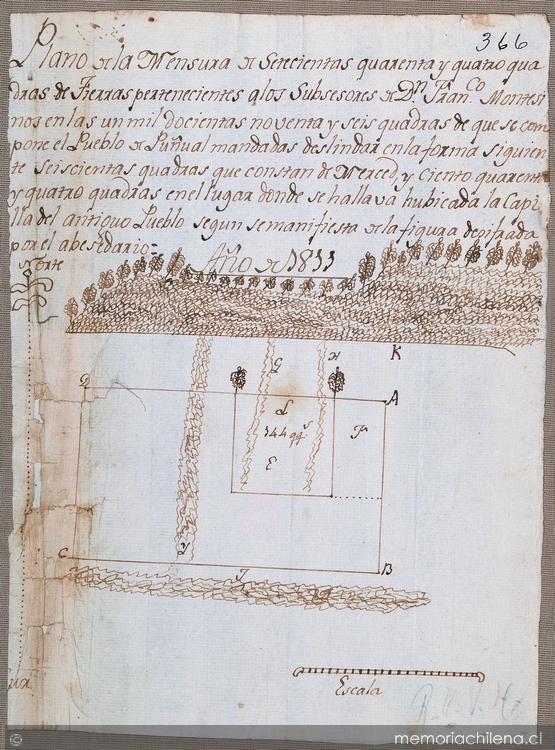 366
Plano de la Mensura de Setecientas quarenta y quatro qua
dras de Tierras pertenecientes a los Subsesores de Dn. Franco. Montesi
nos en las un mil docientas noventa y seis quadras de que se com
pone el Pueblo de Puñual mandadas deslindar en la forma siguien
te seiscientas quadras que constan de Merced, y ciento quarenta
y quatro quadras en el lugar donde se halla va hubicada la Capi
lla del antiguo Pueblo segun se manifiesta de la figura
por el abesedario =
Norte
Año de 1811
K
D
A
G
H
L
144 qqs
F
E
C
Y
J
B
Escala
Sur
© memoriachilena.cl